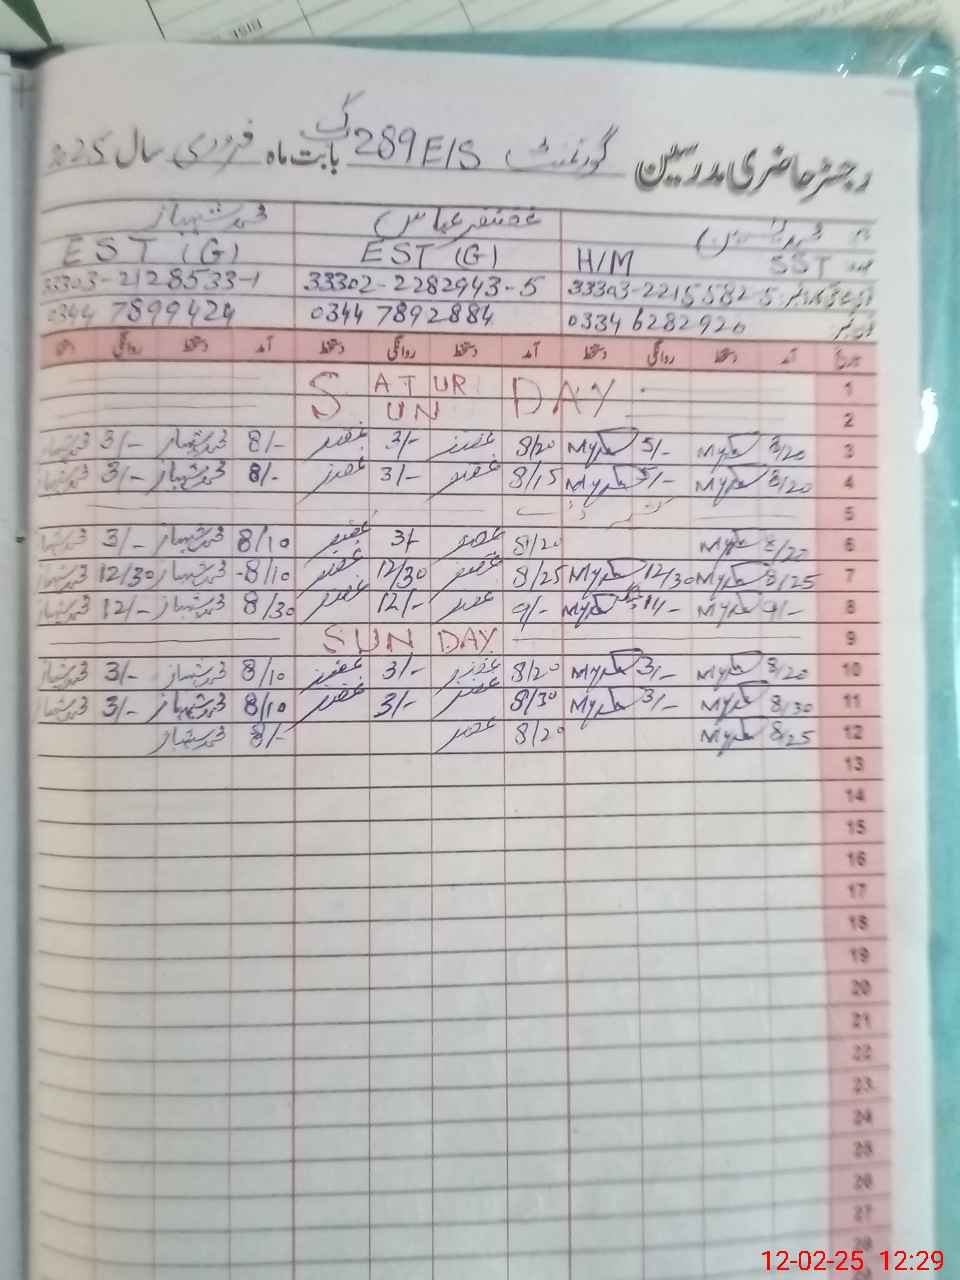 رجسٹر حاضری مدرسین گورنمنٹ 289 E/S گ ب بابت ماہ فروری سال 2025
نام محمد یونس غضنفر عباس محمد شہباز
عہدہ SST H/M EST (G) EST (G)
33303-2215582-5 33302-2282943-5 33303-2128533-1
فون نمبر: 0334 6282920 0344 7892884 0344 7899424
تاریخ آمد دستخط روانگی دستخط آمد دستخط روانگی دستخط آمد دستخط روانگی دستخط
1 SATUR DAY
2 SUN
3 8/20 5/- 8/20 غضنفر 3/- غضنفر 8/- محمد شہباز 3/- محمد شہباز
4 8/20 5/- 8/15 غضنفر 3/- غضنفر 8/- محمد شہباز 3/- محمد شہباز
5
6 8/20 8/20 غضنفر 3/- غضنفر 8/10 محمد شہباز 3/- محمد شہباز
7 8/25 12/30 8/25 غضنفر 12/30 غضنفر 8/10 محمد شہباز 12/30 محمد شہباز
8 9/- 11/- 9/- غضنفر 12/- غضنفر 8/30 محمد شہباز 12/- محمد شہباز
9 SUN DAY
10 8/20 3/- 8/20 غضنفر 3/- غضنفر 8/10 محمد شہباز 3/- محمد شہباز
11 8/30 3/- 8/30 غضنفر 3/- غضنفر 8/10 محمد شہباز 3/- محمد شہباز
12 8/25 8/20 غضنفر 8/- محمد شہباز
13
14
15
16
17
18
19
20
21
22
23
24
25
26
27
28
12-02-25 12:29